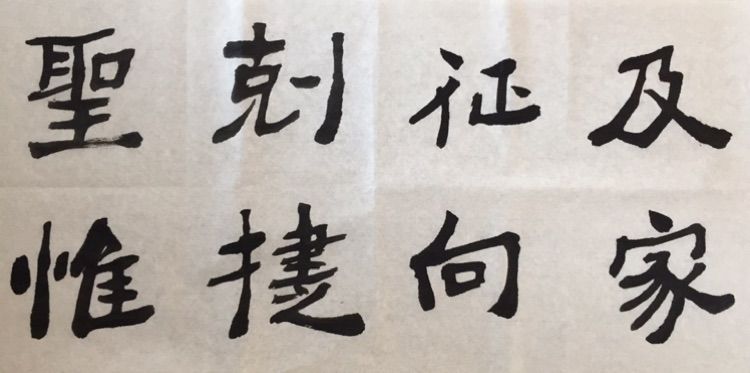 及家
征向
剋捷
聖惟